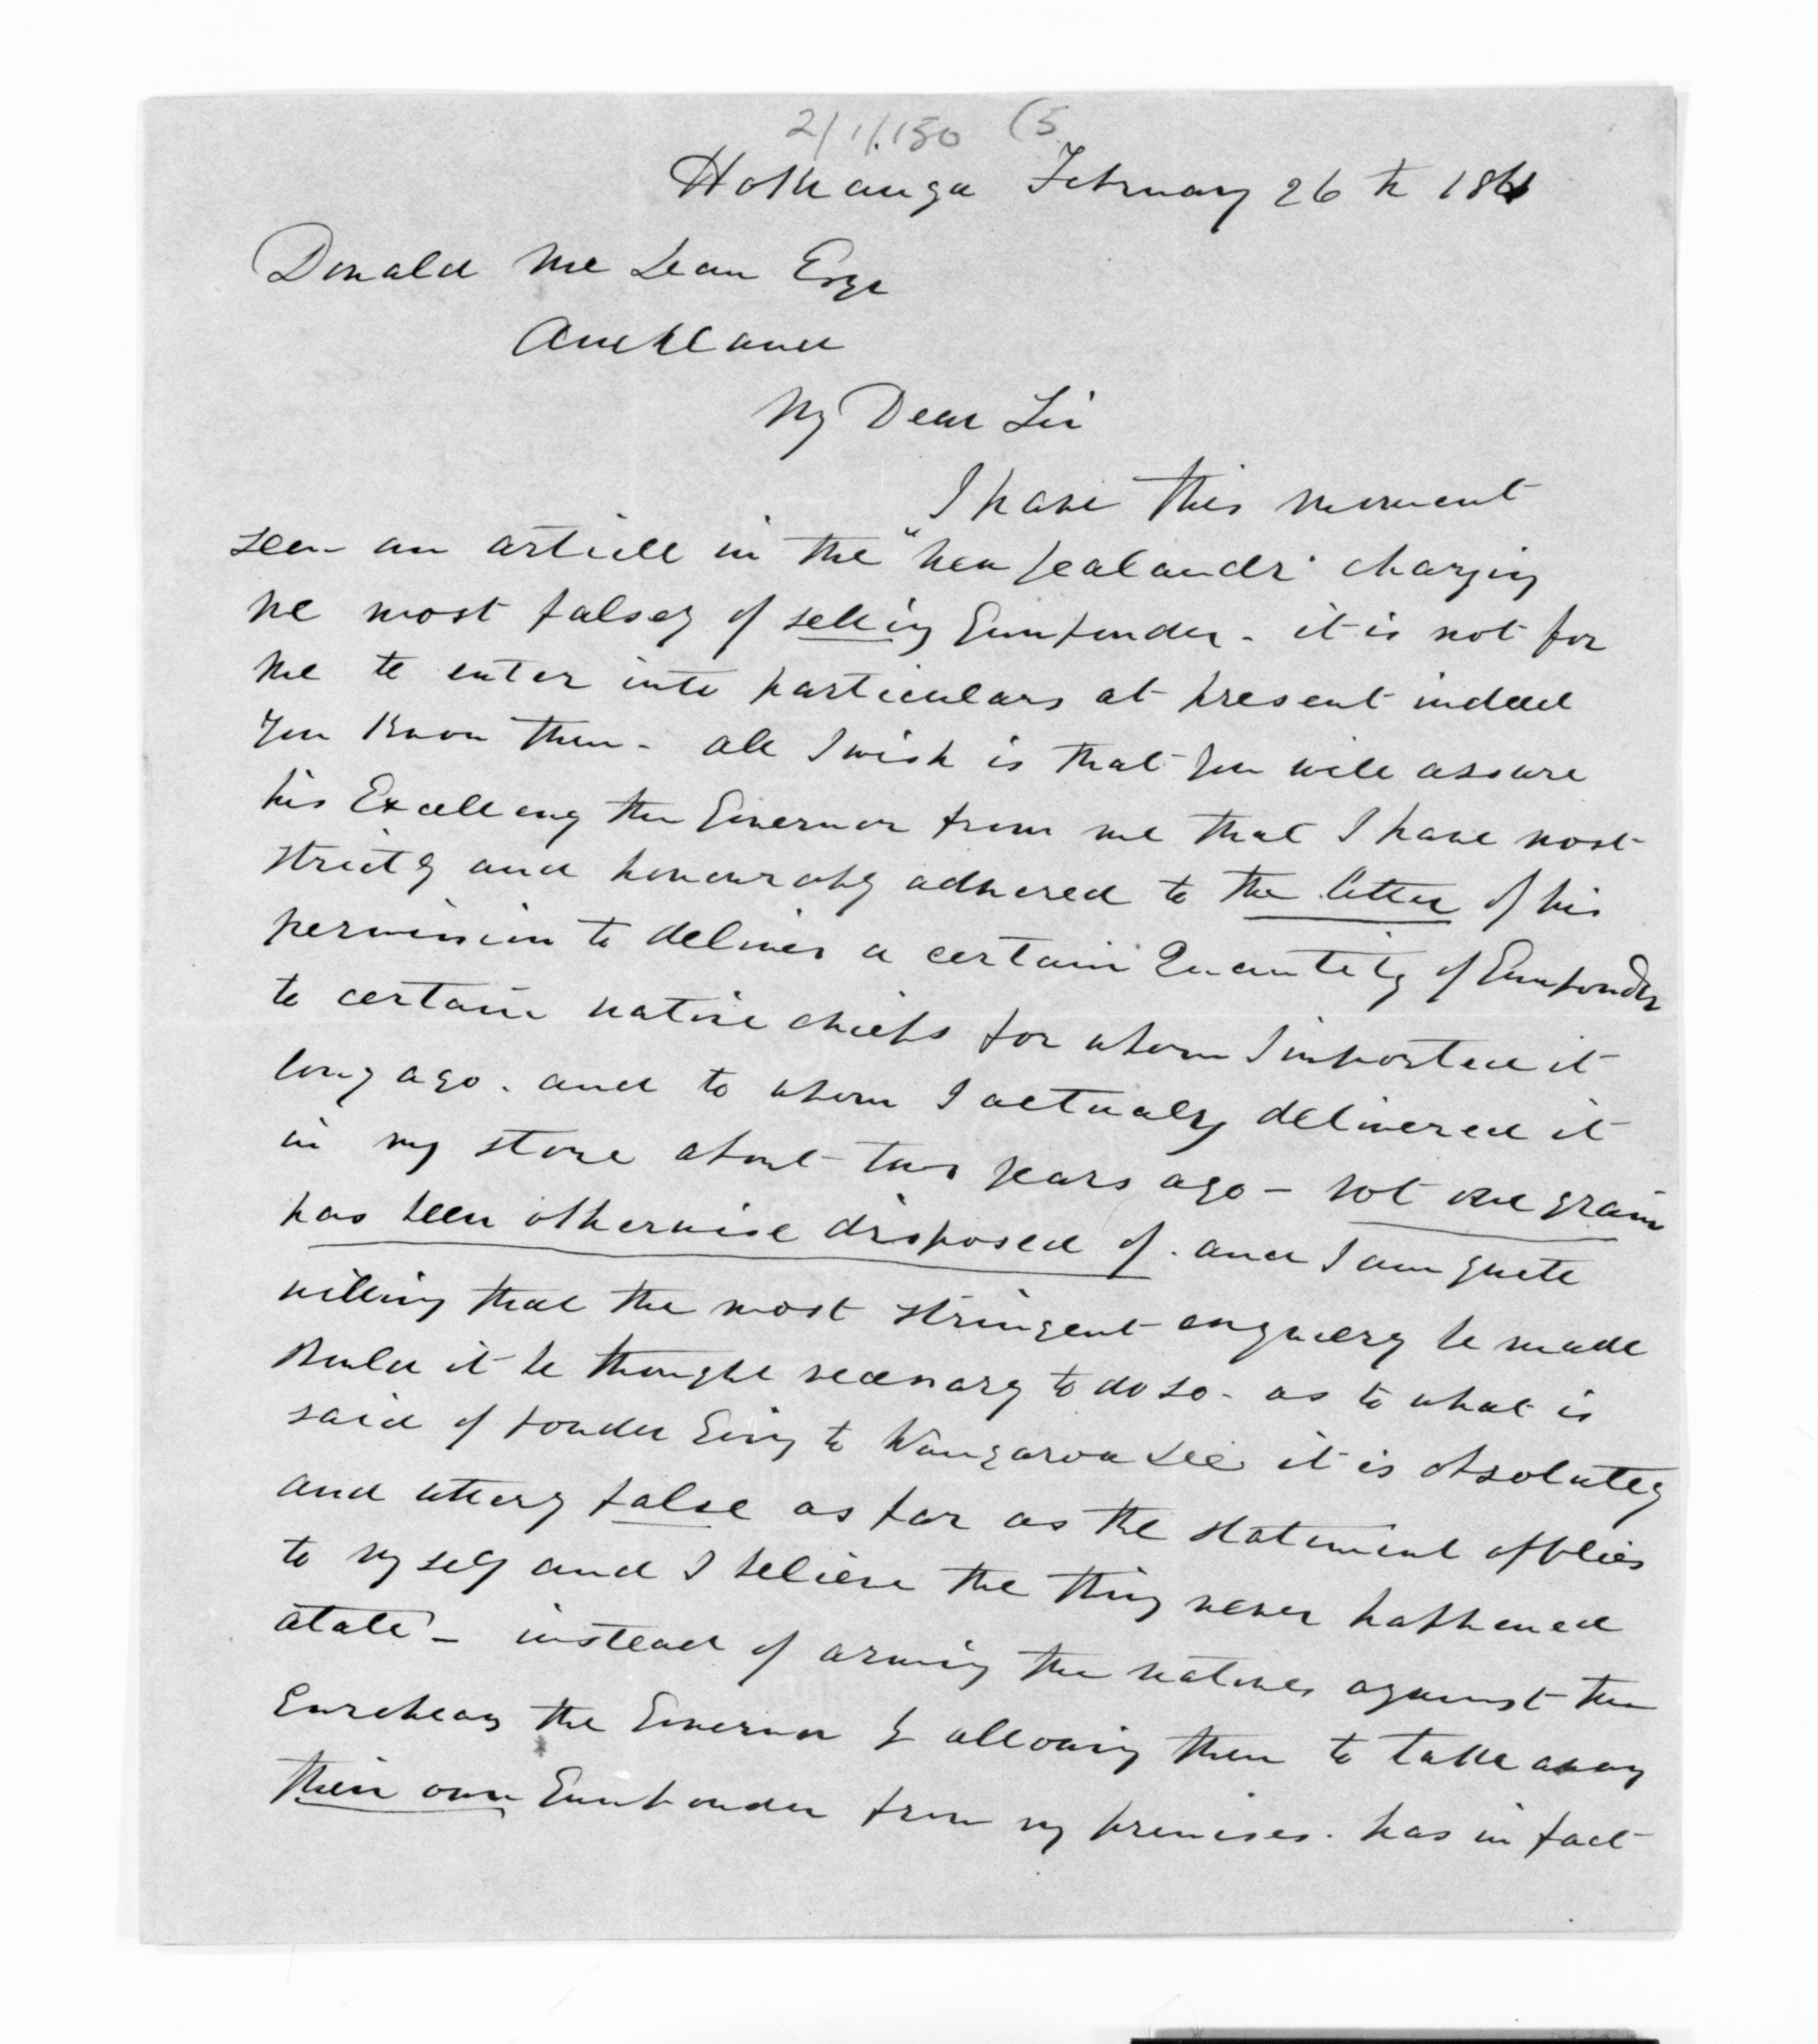 2/1/.150 (5
Hokianga February 26th 1861
Donald McLean Esqr
Auckland
My Dear Sir
I have this moment
seen an article in the "New Zealander" charging
me most falsey of selling Gunpowder - it is not for
me to enter into particulars at present indeed
you know them - all I wish is that you will assure
his Excellency the Governor from me that I have most
strictly and honourably adhered to the letter of his
permission to deliver a certain Quantity of Gunpowder
to certain native chiefs for whom I imported it
long ago. and to whom I actualy delivered it
in my store about two years ago - not one grain
has been otherwise disposed of. and I am quite
willing that the most stringent enquiery be made
should it be thought necessary to do so - as to what is
said of powder Going to Wangaroa it is absolutely
and utterly false as far as the statement applies
to myself and I believe the thing never happened
atall - instead of arming the natives against the
Europeans the Governor by allowing them to take away
their own Gunpowder from my premises. has in fact